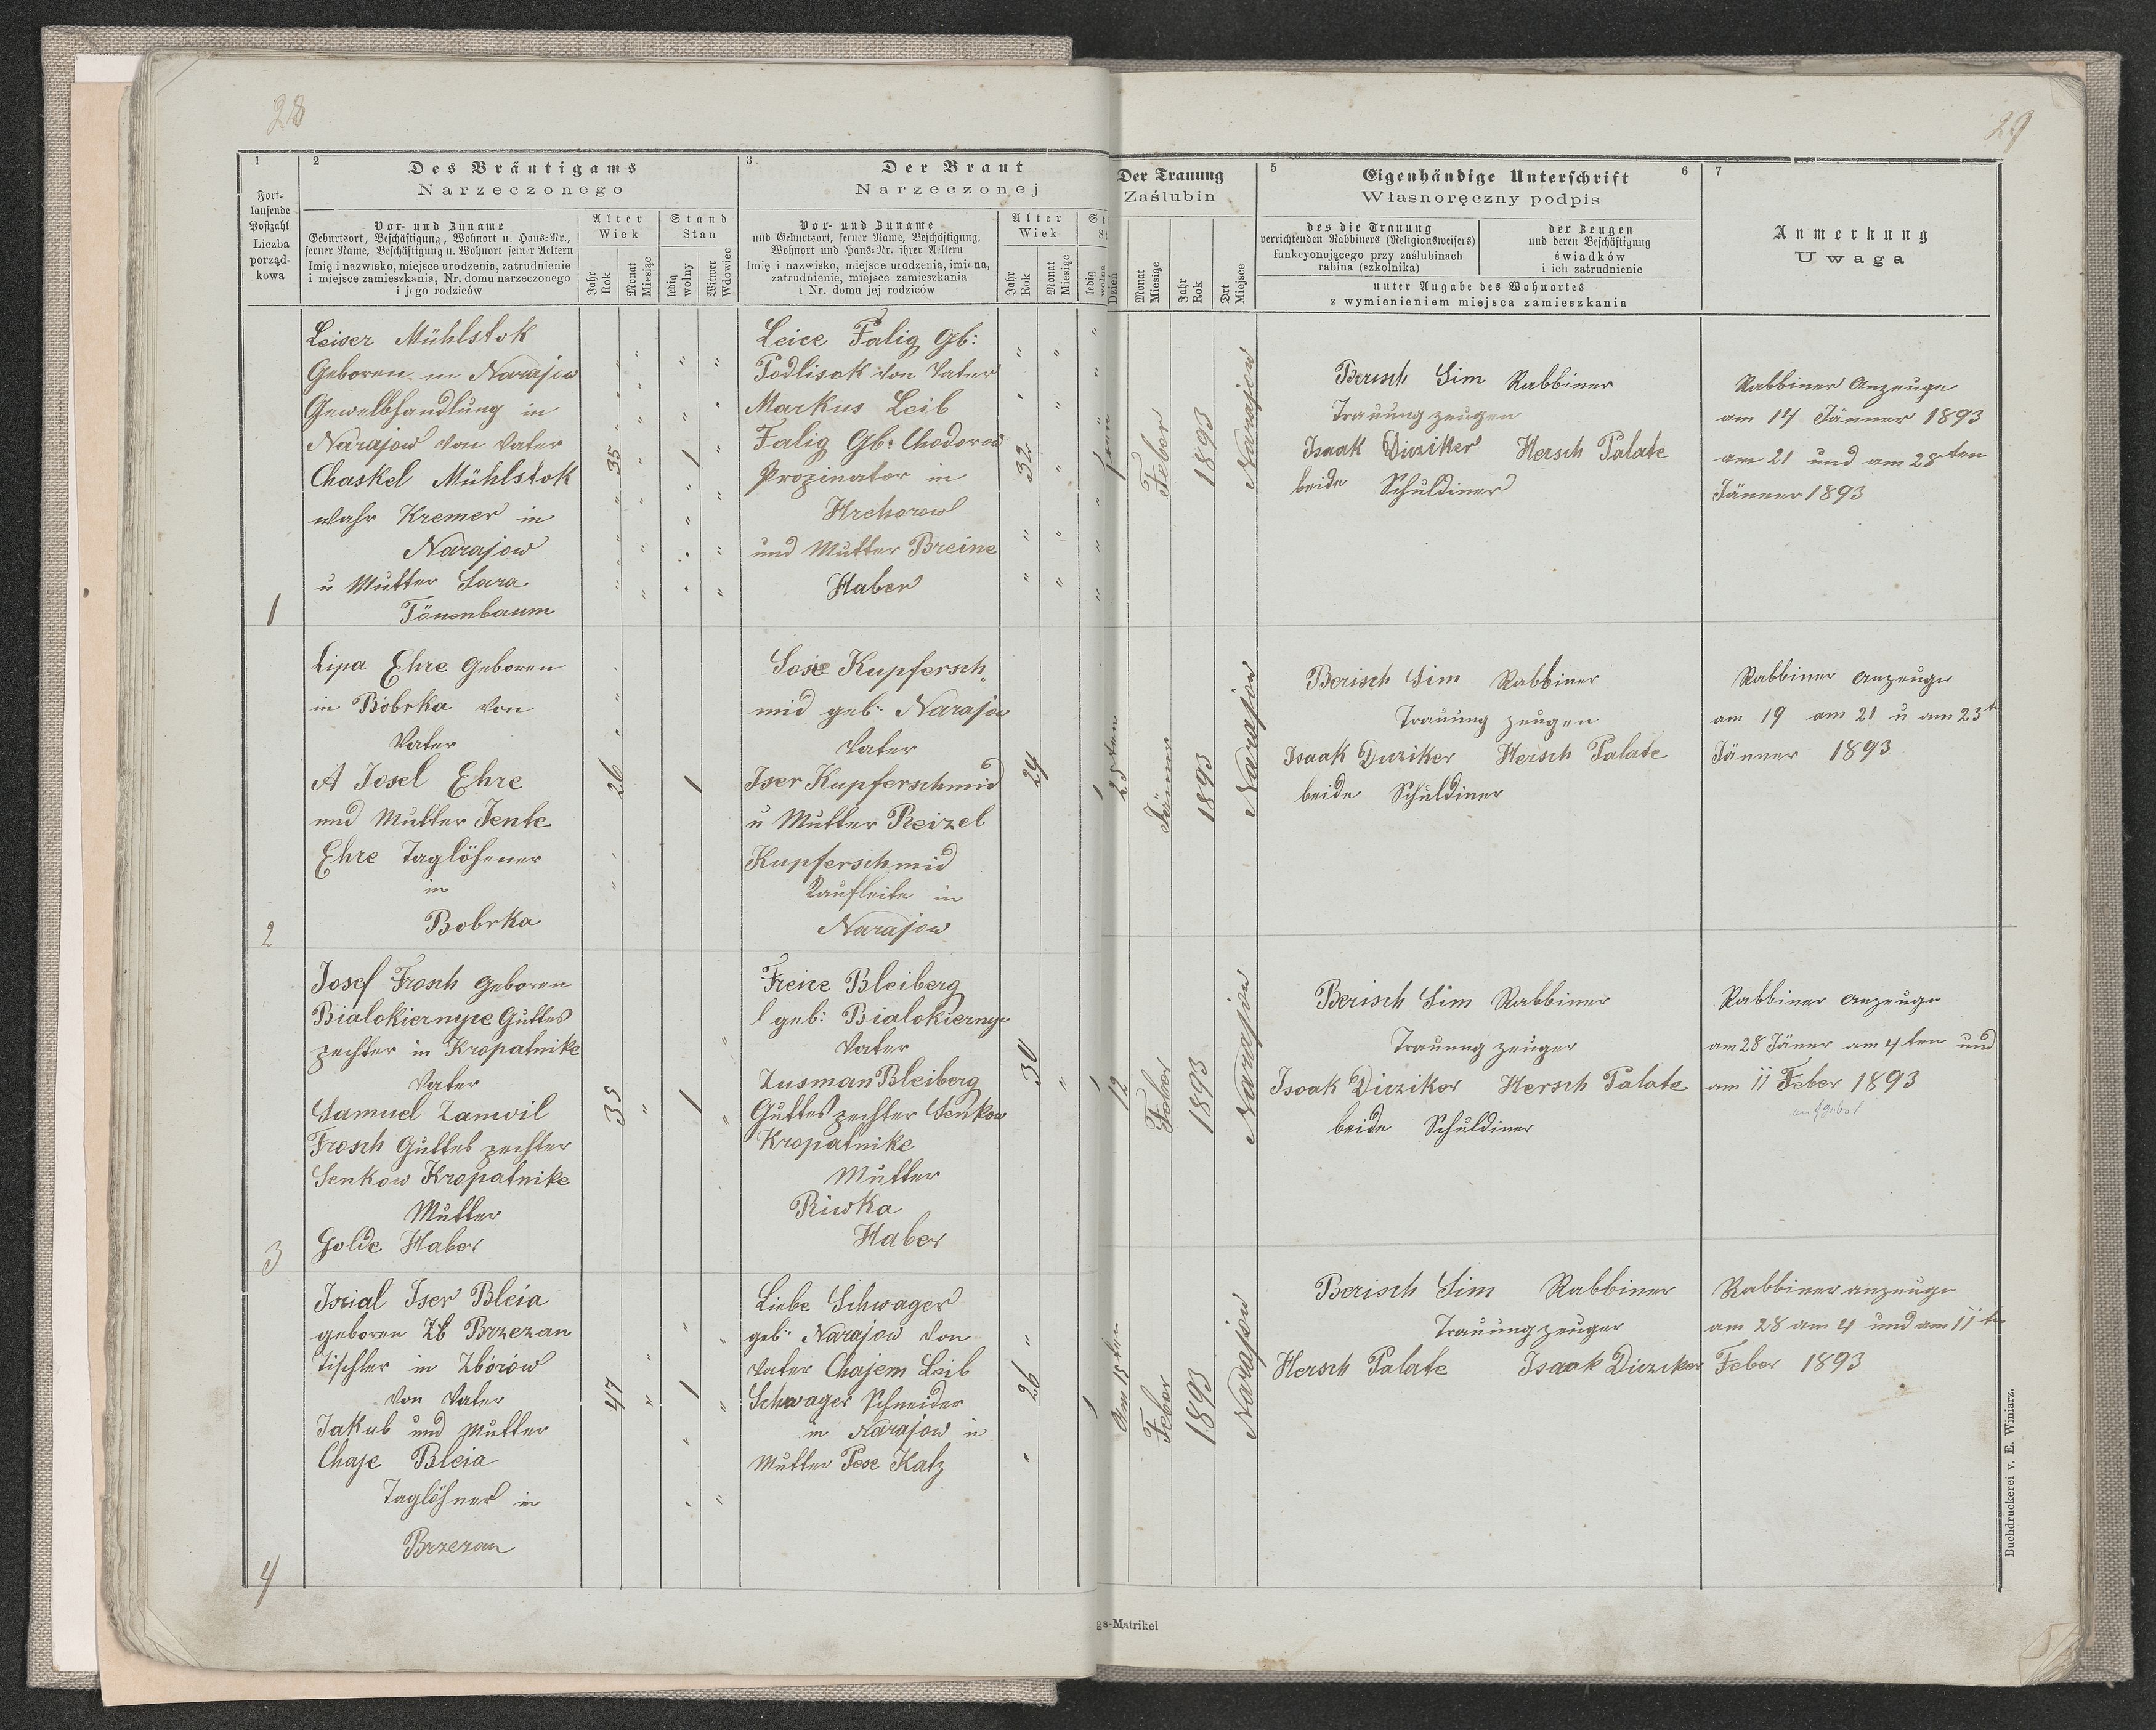 28
29
1
Fort-
laufende
Postzahl
Liczba
porząd-
kowa
2
Des Bräutigams
Narzeczonego
Vor- und Zuname
Geburtsort, Beschäftigung, Wohnort u. Haus-Nr.,
ferner Name, Beschäftigung u. Wohnort seiner Aeltern
Imię i nazwisko, miejsce urodzenia, zatrudnienie
i miejsce zamieszkania, Nr. domu narzeczonego
i jego rodziców
Alter
Wiek
Jahr
Rok
Monat
Miesiąc
Stand
Stan
ledig
wolny
Witwer
Wdowiec
3
Der Braut
Narzeczonej
Vor- und Zuname
und Geburtsort, ferner Name, Beschäftigung,
Wohnort und Haus-Nr. ihrer Aeltern
Imię i nazwisko, miejsce urodzenia, imiona,
zatrudnienie, miejsce zamieszkania
i Nr. domu jej rodziców
Alter
Wiek
Jahr
Rok
Monat
Miesiąc
ledig
Der Trauung
Zaślubin
Dzień
Monat
Miesiąc
Jahr
Rok
Ort
Miejsce
5
Eigenhändige Unterschrift
6
Własnoręczny podpis
des die Trauung
verrichtenden Rabbiners (Religionsweisers)
funkcyonującego przy zaślubinach
rabina (szkolnika)
der Zeugen
und deren Beschäftigung
świadków
i ich zatrudnienie
unter Angabe des Wohnortes
z wymienieniem miejsca zamieszkania
7
Anmerkung
Uwaga
1
Leiser Mühlstok
Geboren in Narajow
Gewelbhandlung in
Narajow von Vater
Chaskel Mühlstok
wahr Kremer in
Narajow
u Mutter Sara
Tönenbaum
35
1
Leice Falig Gb:
Podlisok von Vater
Markus Leib
Falig Gb: Chodorow
Propinator in
Hrehorow
und Mutter Breine
Haber
32
Feber
1893
Narajow
Berisch Sim Rabbiner
Trauung zeugen
Isaak Diviziker Hersch Palate
beide Schuldiner
Rabbiner Anzeuge
am 14 Jänner 1893
am 21 und am 28ten
Jänner 1893
2
Lipa Ehre Geboren
in Bobrka von
Vater
A Josel Ehre
und Mutter Jente
Ehre Taglöhener
in
Bobrka
26
1
Sosie Kupfersch
mid geb: Narajow
Vater
Iser Kupferschmid
u Mutter Reizel
Kupferschmid
Kaufleite in
Narajow
24
1
25ten
Jänner
1893
Narajow
Berisch Sim Rabbiner
Trauung zeugen
Isaak Duziker Hersch Palate
beide Schuldiner
Rabbiner Anzeuge
am 19 am 21 u am 23t
Jänner 1893
3
Josef Frosch Geboren
Bialokiernyce Guttes
pechter in Kropatnike
Vater
Samuel Zanwil
Frosch Guttes pechter
Senkow Kropatnike
Mutter
Golde Haber
35
1
Freice Bleiberg
geb: Bialokierny
Vater
Zusman Bleiberg
Guttes pechter Senkow
Kropatnike
Mutter
Riwka
Haber
30
1
12
Feber
1893
Narajow
Berisch Sim Rabbiner
Trauung zeuger
Isaak Diviziker Hersch Palate
beide Schuldiner
Rabbiner Anzeuge
am 28 Jäner am 4ten und
am 11 Feber 1893
4
Isrial Iser Bleia
geboren Zb Brzezan
Tischler in Zborów
von Vater
Jakub und Mutter
Chaje Bleia
Taglöhner in
Brzezan
47
1
Liebe Schwager
geb: Narajow von
Vater Chajem Leib
Schwager Schneider
in Narajow u
Mutter Pese Katz
26
1
Am 15ten
Feber
1893
Narajow
Berisch Sim Rabbiner
Trauung zeuger
Hersch Palate Isaak Diviziker
Rabbiner anzeuge
am 28 am 4 und am 11t
Feber 1893
gs-Matrikel
Buchdruckerei v. E. Winiarz.